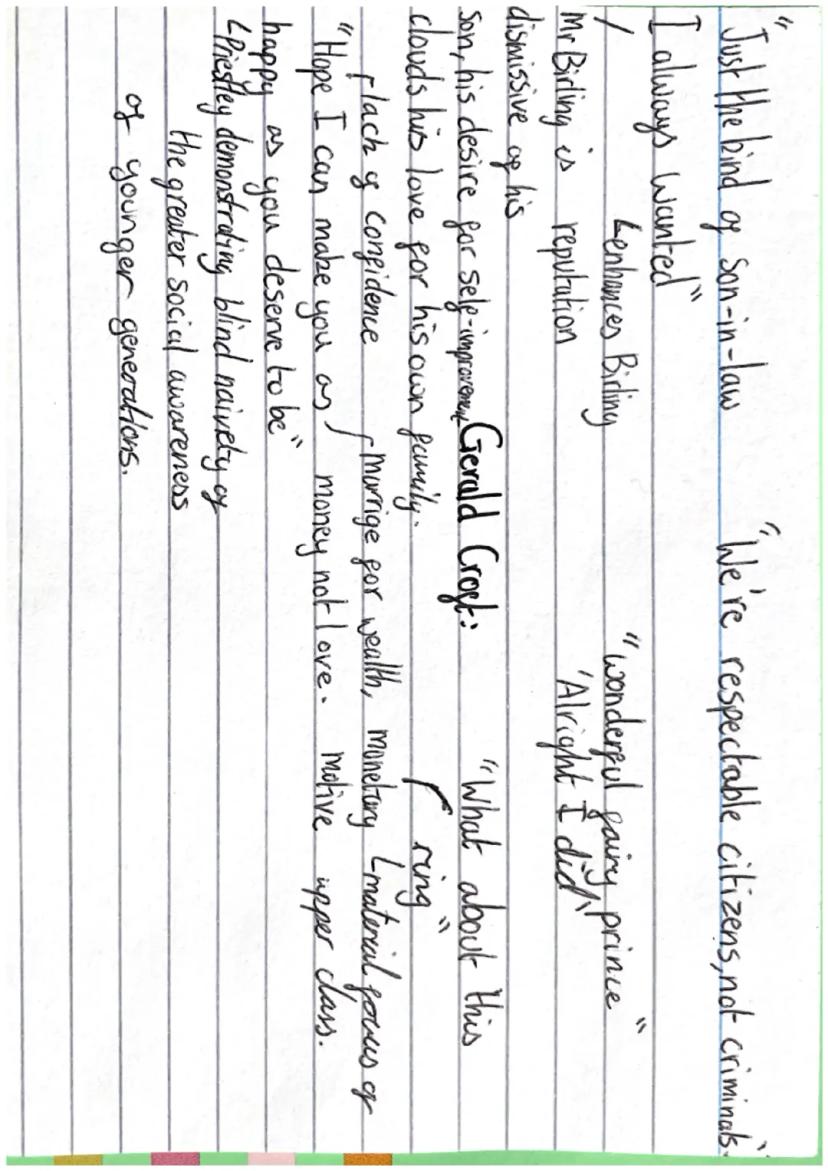 "Just the kind of son-in-law
I always wanted"
↳enhances Birling
Mr Birling is reputation
dismissive of his
son, his desire for self-improvement
clouds his love for his own family.
"We're respectable citizens, not criminals."
"wonderful fairy prince"
'Alright I did'
Gerald Croft:
"What about this
ring"
lack of confidence
"Hope I can make you as
happy as you deserve to be"
↳Priestley demonstrating blind naivety of
the greater social awareness
of younger generations.
Marrige for wealth, monetary
money not love. motive
↳material focus of
upper class.